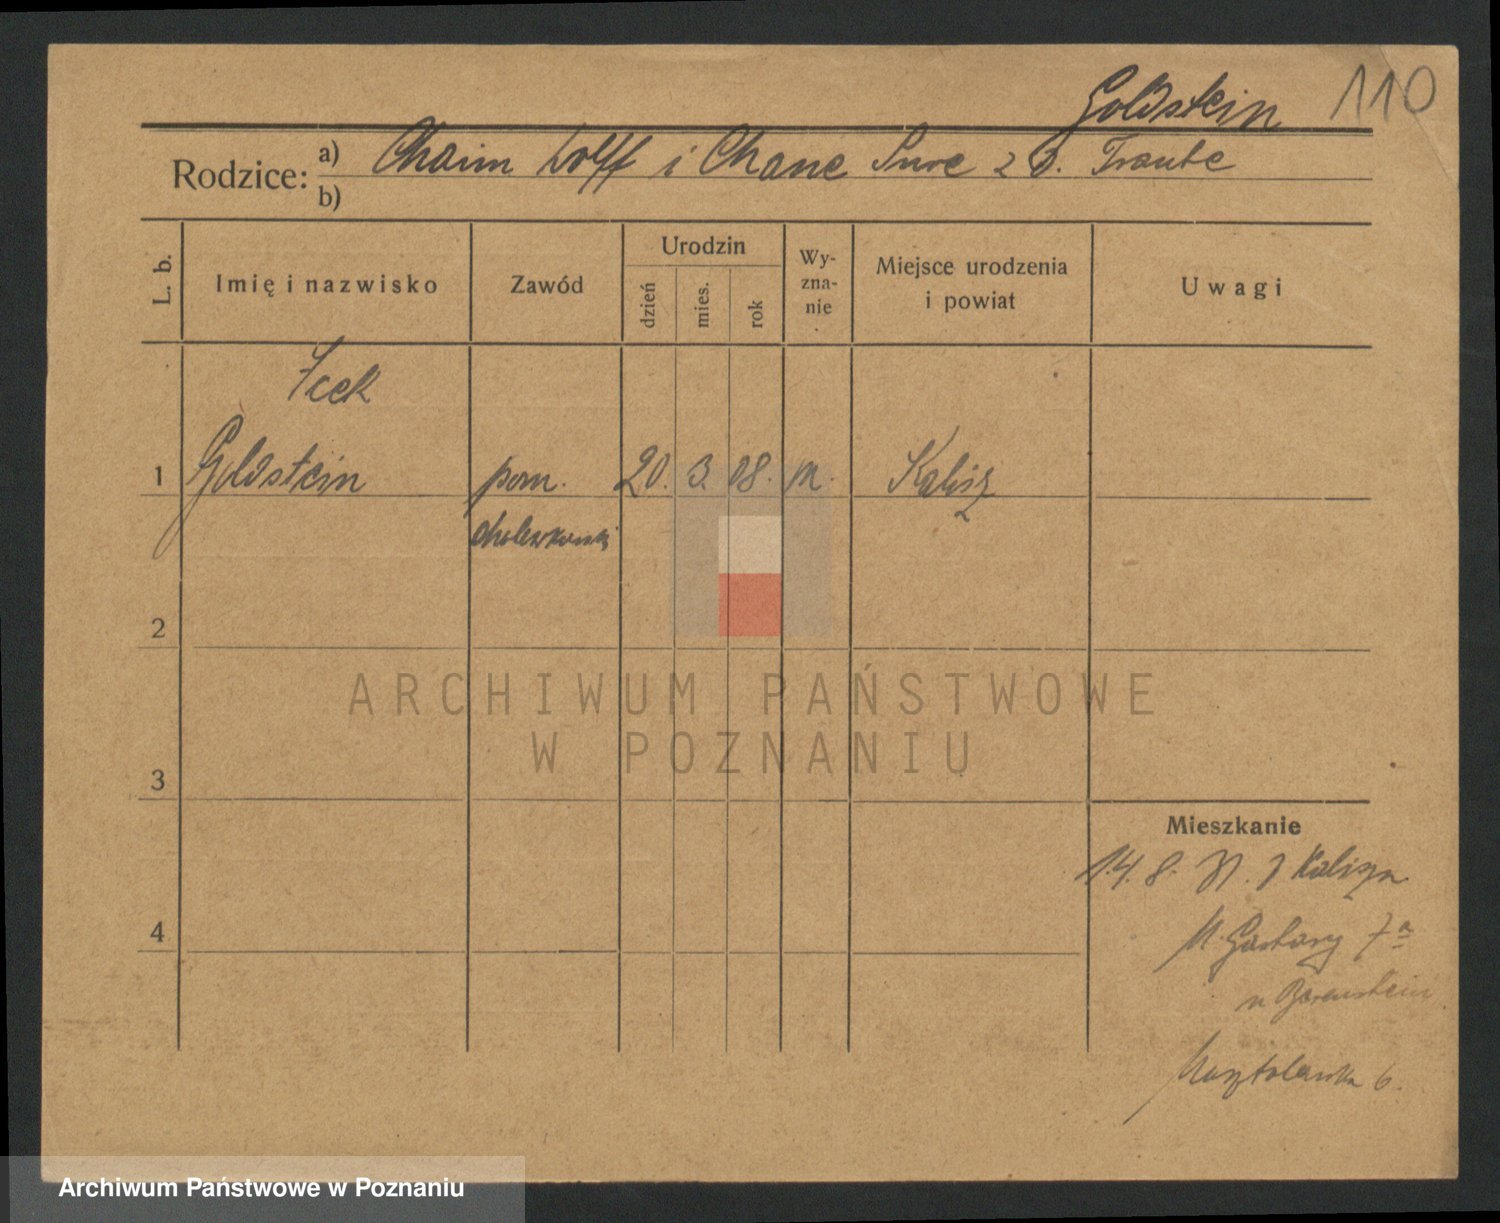 Goldstein 110
Rodzice: a) Chaim Wolff i Chane Sure z d. Traube
b)
L. b. Imię i nazwisko Zawód Urodzin dzień mies. rok Wy-zna-nie Miejsce urodzenia i powiat Uwagi
Icek
1 Goldstein pom. 20. 3. 08. m. Kalisz
cholewkarski
2
ARCHIWUM PAŃSTWOWE
W POZNANIU
3
Mieszkanie
14. 8. 31. z Kalisza
4
M. Garbary 7a
u Borenstein
Masztalarska 6.
Archiwum Państwowe w Poznaniu